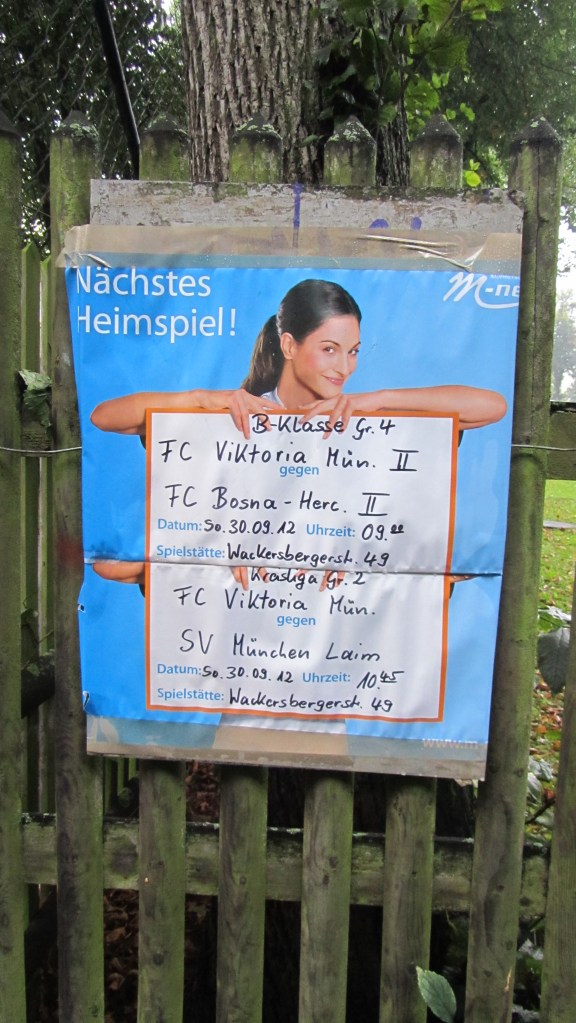 Nächstes
Heimspiel!
M-ne
B-Klasse Gr. 4
FC Viktoria Mün. II
gegen
FC Bosna-Herc. II
Datum: So. 30.09.12 Uhrzeit: 09.00
Spielstätte: Wackersbergerstr. 49
Kreisliga Gr. 2
FC Viktoria Mün.
gegen
SV München Laim
Datum: So. 30.09.12 Uhrzeit: 10.45
Spielstätte: Wackersbergerstr. 49